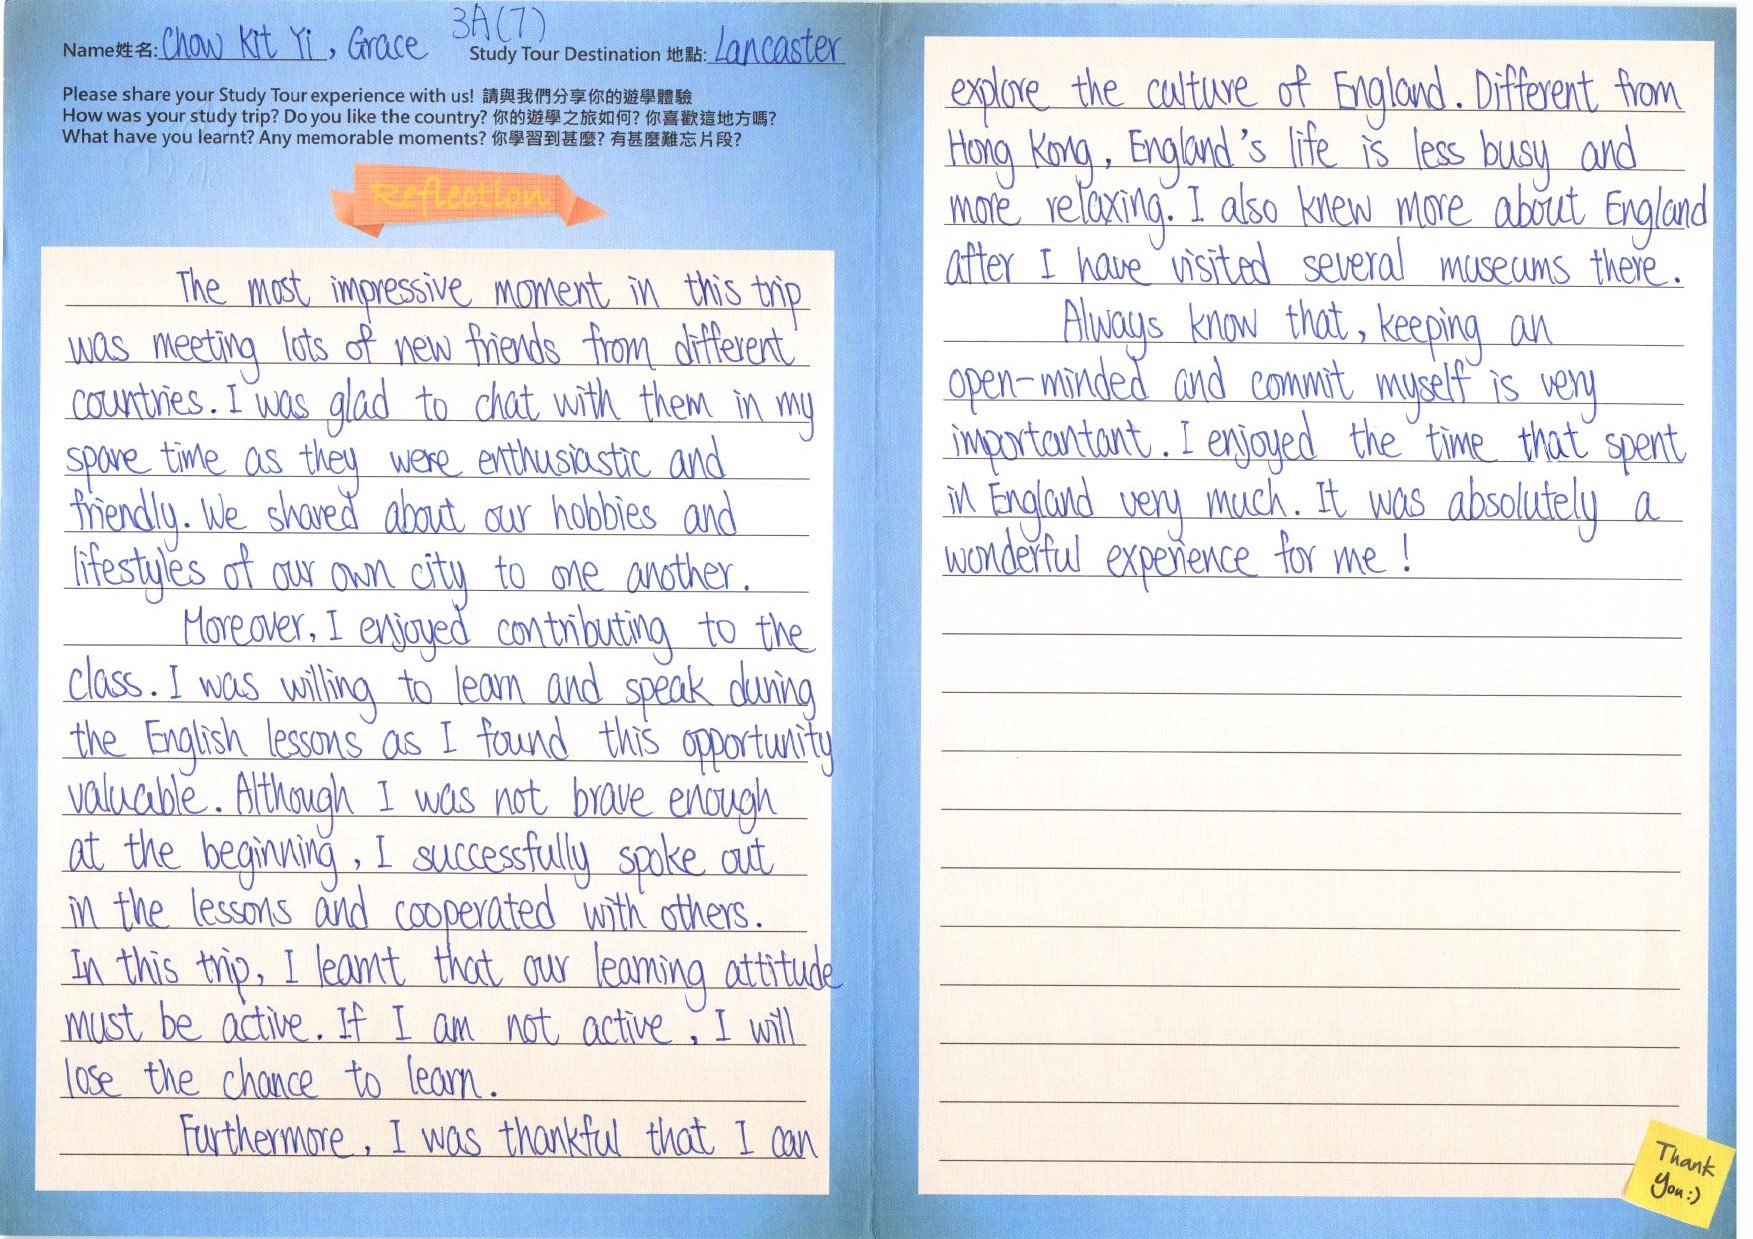 Name姓名: Chow Kit Yi, Grace 3A(7) Study Tour Destination 地點: Lancaster
Please share your Study Tour experience with us! 請與我們分享你的遊學體驗
How was your study trip? Do you like the country? 你的遊學之旅如何? 你喜歡這地方嗎?
What have you learnt? Any memorable moments? 你學習到甚麼? 有甚麼難忘片段?
Reflection
The most impressive moment in this trip
was meeting lots of new friends from different
countries. I was glad to chat with them in my
spare time as they were enthusiastic and
friendly. We shared about our hobbies and
lifestyles of our own city to one another.
Moreover, I enjoyed contributing to the
class. I was willing to learn and speak during
the English lessons as I found this opportunity
valuable. Although I was not brave enough
at the beginning, I successfully spoke out
in the lessons and cooperated with others.
In this trip, I learnt that our learning attitude
must be active. If I am not active, I will
lose the chance to learn.
Furthermore, I was thankful that I can
explore the culture of England. Different from
Hong Kong, England's life is less busy and
more relaxing. I also knew more about England
after I have visited several museums there.
Always know that, keeping an
open-minded and commit myself is very
importantant. I enjoyed the time that spent
in England very much. It was absolutely a
wonderful experience for me!
Thank
You:)